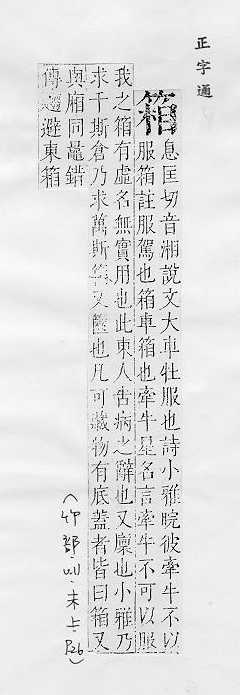 正字通
箱
息匡切音湘說文大車牡服也詩小雅睆彼牽牛不以
服箱註服駕也箱車箱也牽牛星名言牽牛不可以服
我之箱有虛名無實用也此東人告病之辭也又廩也小雅乃
求千斯倉乃求萬斯箱又篋也凡可藏物有底蓋者皆曰箱又
與廂同鼂錯
傳趨避東箱
(竹部·未上·P26)